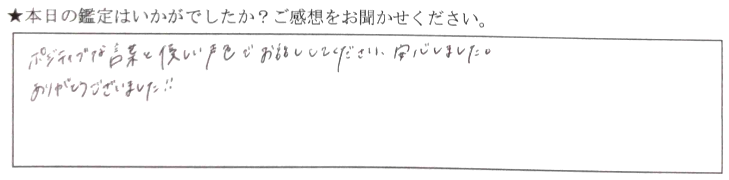 ★本日の鑑定はいかがでしたか？ご感想をお聞かせください。
ポジティブな言葉と優しい声色でお話ししてくださり、安心しました。
ありがとうございました!!